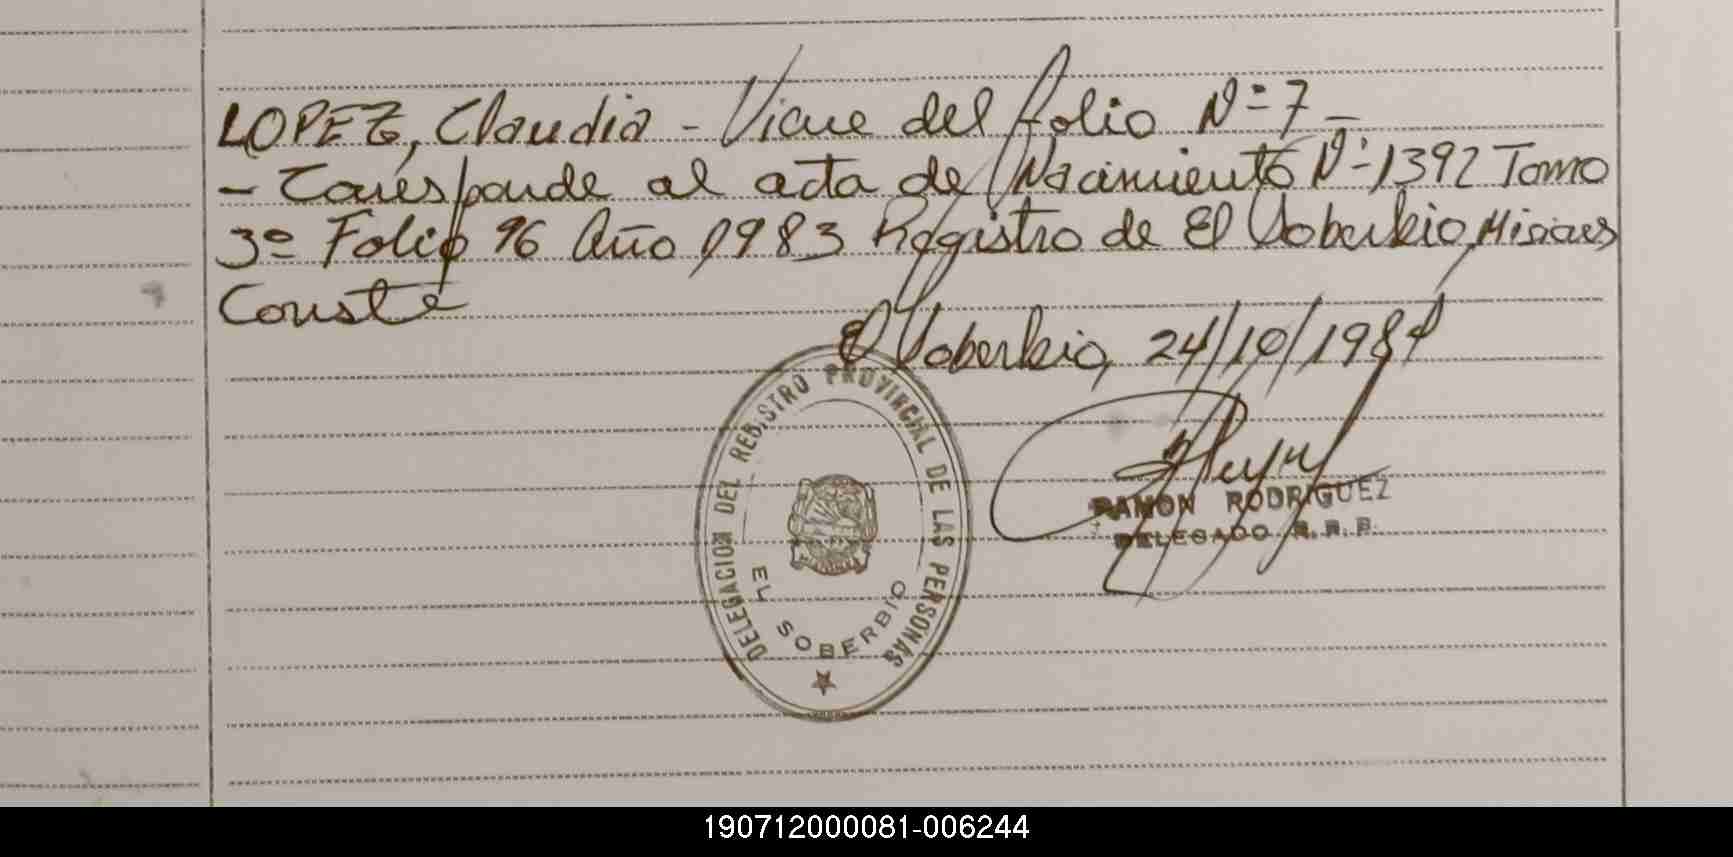 LOPEZ, Claudia - Viene del folio Nº 7 -
- Corresponde al acta de Nacimiento Nº 1392 Tomo
3º Folio 96 Año 1983 Registro de El Soberbio, Misiones
Conste
El Soberbio, 24/10/1984
DELEGACION DEL REGISTRO PROVINCIAL DE LAS PERSONAS
EL SOBERBIO
RAMON RODRIGUEZ
DELEGADO R. R. P.
190712000081-006244